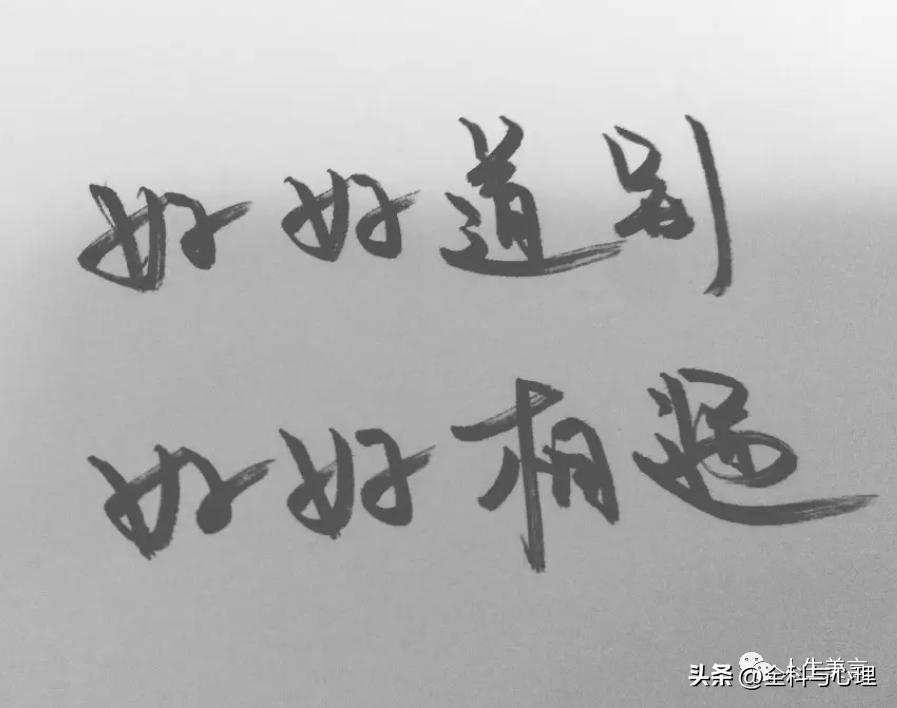 好好道别
好好相遇
头条 @全科与心理